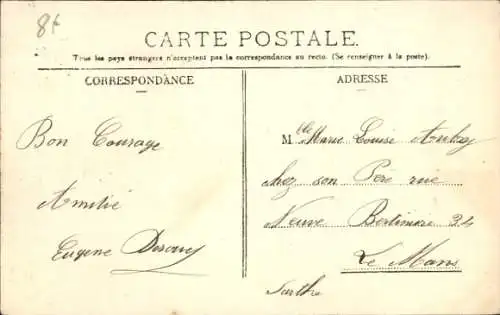 8f
CARTE POSTALE.
Tous les pays étrangers n'acceptent pas la correspondance au recto. (Se renseigner à la poste).
CORRESPONDANCE
ADRESSE
Bon Courage
Amitié
Eugène
Mlle Marie Louise
chez son Père rue
Neuve 34
Le Mans
Sarthe